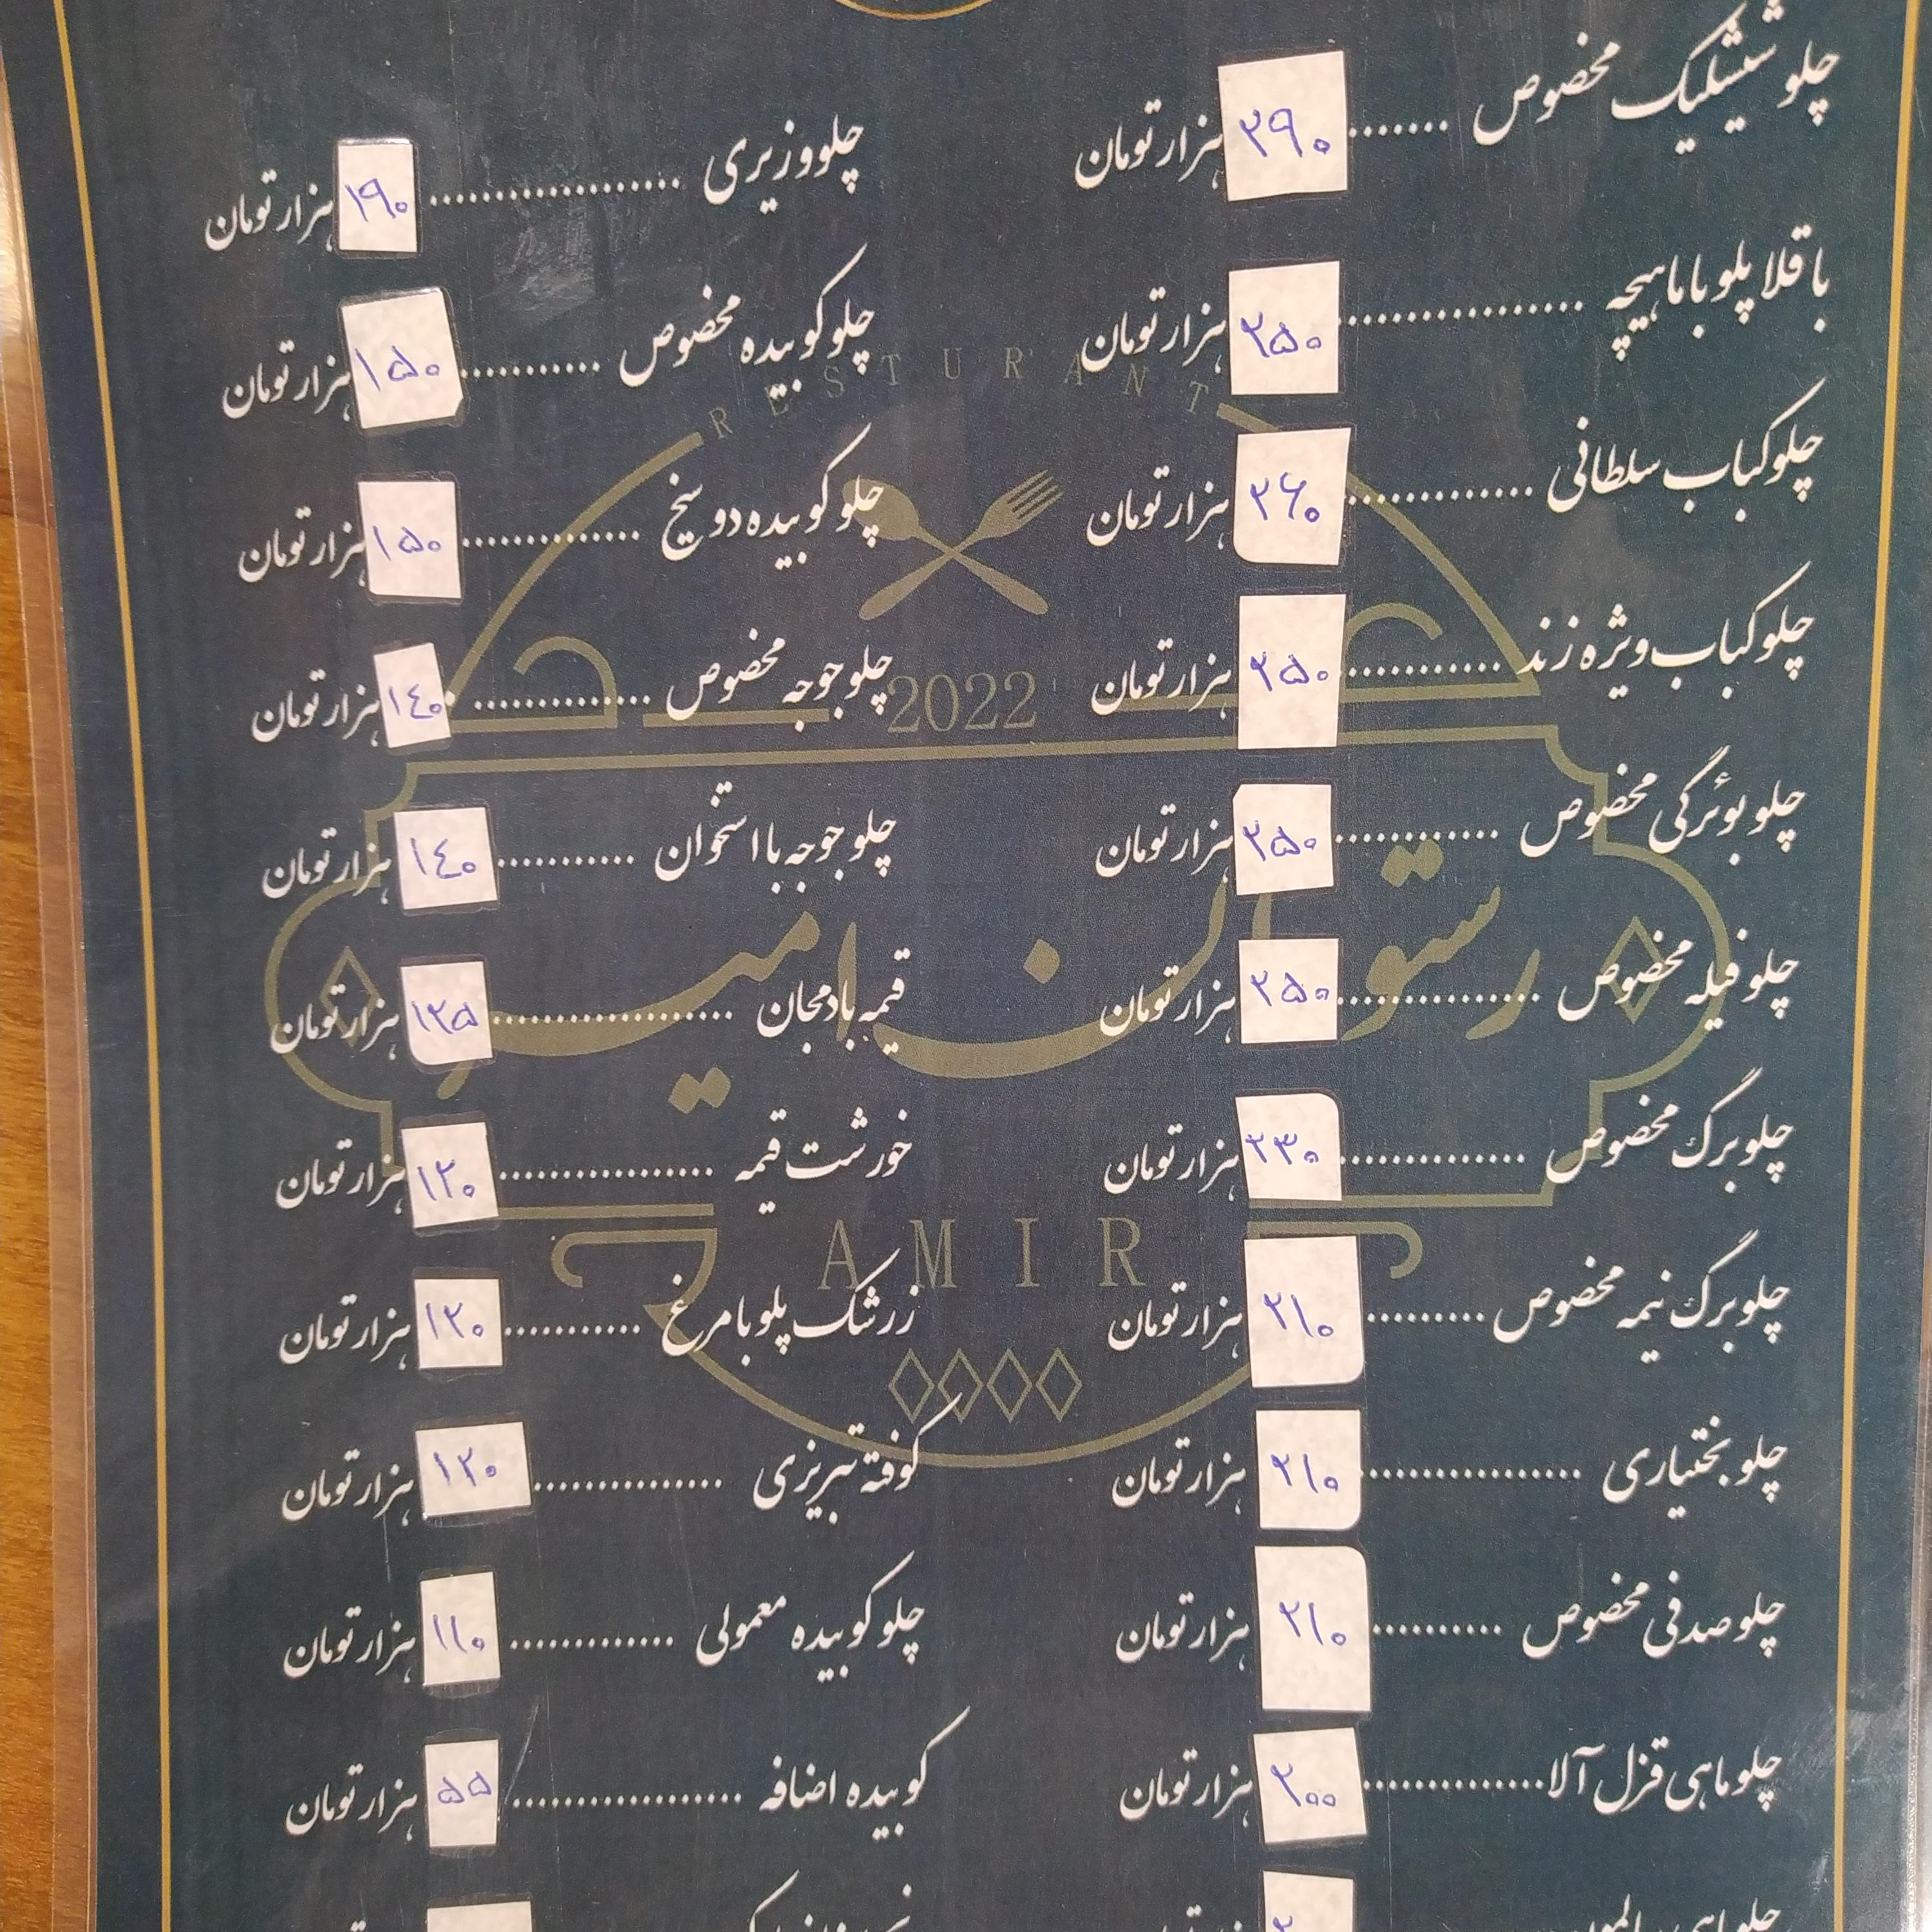 چلو ششلیک مخصوص ....... ۲۹۰ هزار تومان
باقلا پلو با ماهیچه ............... ۲۵۰ هزار تومان
چلو کباب سلطانی ............ ۲۶۰ هزار تومان
چلو کباب ویژه زند ............ ۲۵۰ هزار تومان
چلو بوئرگی مخصوص ............ ۲۵۰ هزار تومان
چلو فیله مخصوص ............... ۲۵۰ هزار تومان
چلو برگ مخصوص .............. ۲۳۰ هزار تومان
چلو برگ نیمه مخصوص ......... ۲۱۰ هزار تومان
چلو بختیاری ................ ۲۱۰ هزار تومان
چلو صدفی مخصوص .......... ۲۱۰ هزار تومان
چلو ماهی قزل آلا .............. ۲۰۰ هزار تومان
چلو وزیری ................... ۱۹۰ هزار تومان
چلو کوبیده مخصوص ........... ۱۵۰ هزار تومان
چلو کوبیده دو سیخ .............. ۱۵۰ هزار تومان
چلو جوجه مخصوص .............. ۱۴۰ هزار تومان
چلو جوجه با استخوان ........... ۱۴۰ هزار تومان
قیمه بادمجان ................... ۱۲۵ هزار تومان
خورشت قیمه ................. ۱۲۰ هزار تومان
زرشک پلو با مرغ ........... ۱۲۰ هزار تومان
کوفته تبریزی .............. ۱۲۰ هزار تومان
چلو کوبیده معمولی ............. ۱۱۰ هزار تومان
کوبیده اضافه .................. ۵۵ هزار تومان
RESTURANT
2022
رستوران امیر
AMIR